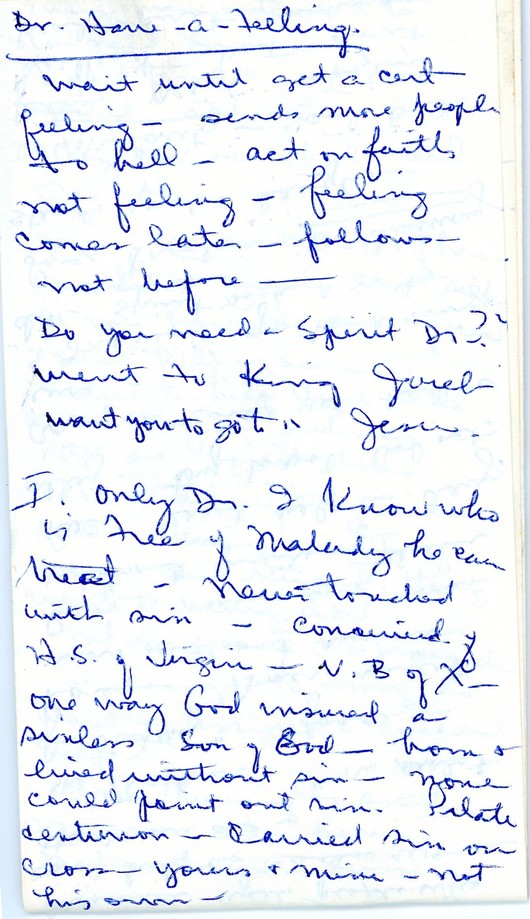 Dr. Have-a-Feeling.
Wait until get a cert
feeling - sends more people
to hell - act on faith
not feeling - feeling
comes later - follows -
not before —
Do you need a Spirit Dr.?
went to King
want you to go to " Jesus.
I. Only Dr. I know who
is Free of Malady he can
treat - Never touched
with sin - conceived of
H.S. of Virgin - V. B of X -
one way God insured a
sinless Son of God - born &
lived without sin - none
could point out sin. Pilate
centurion - Carried sin on
cross - yours & mine - not
his own -